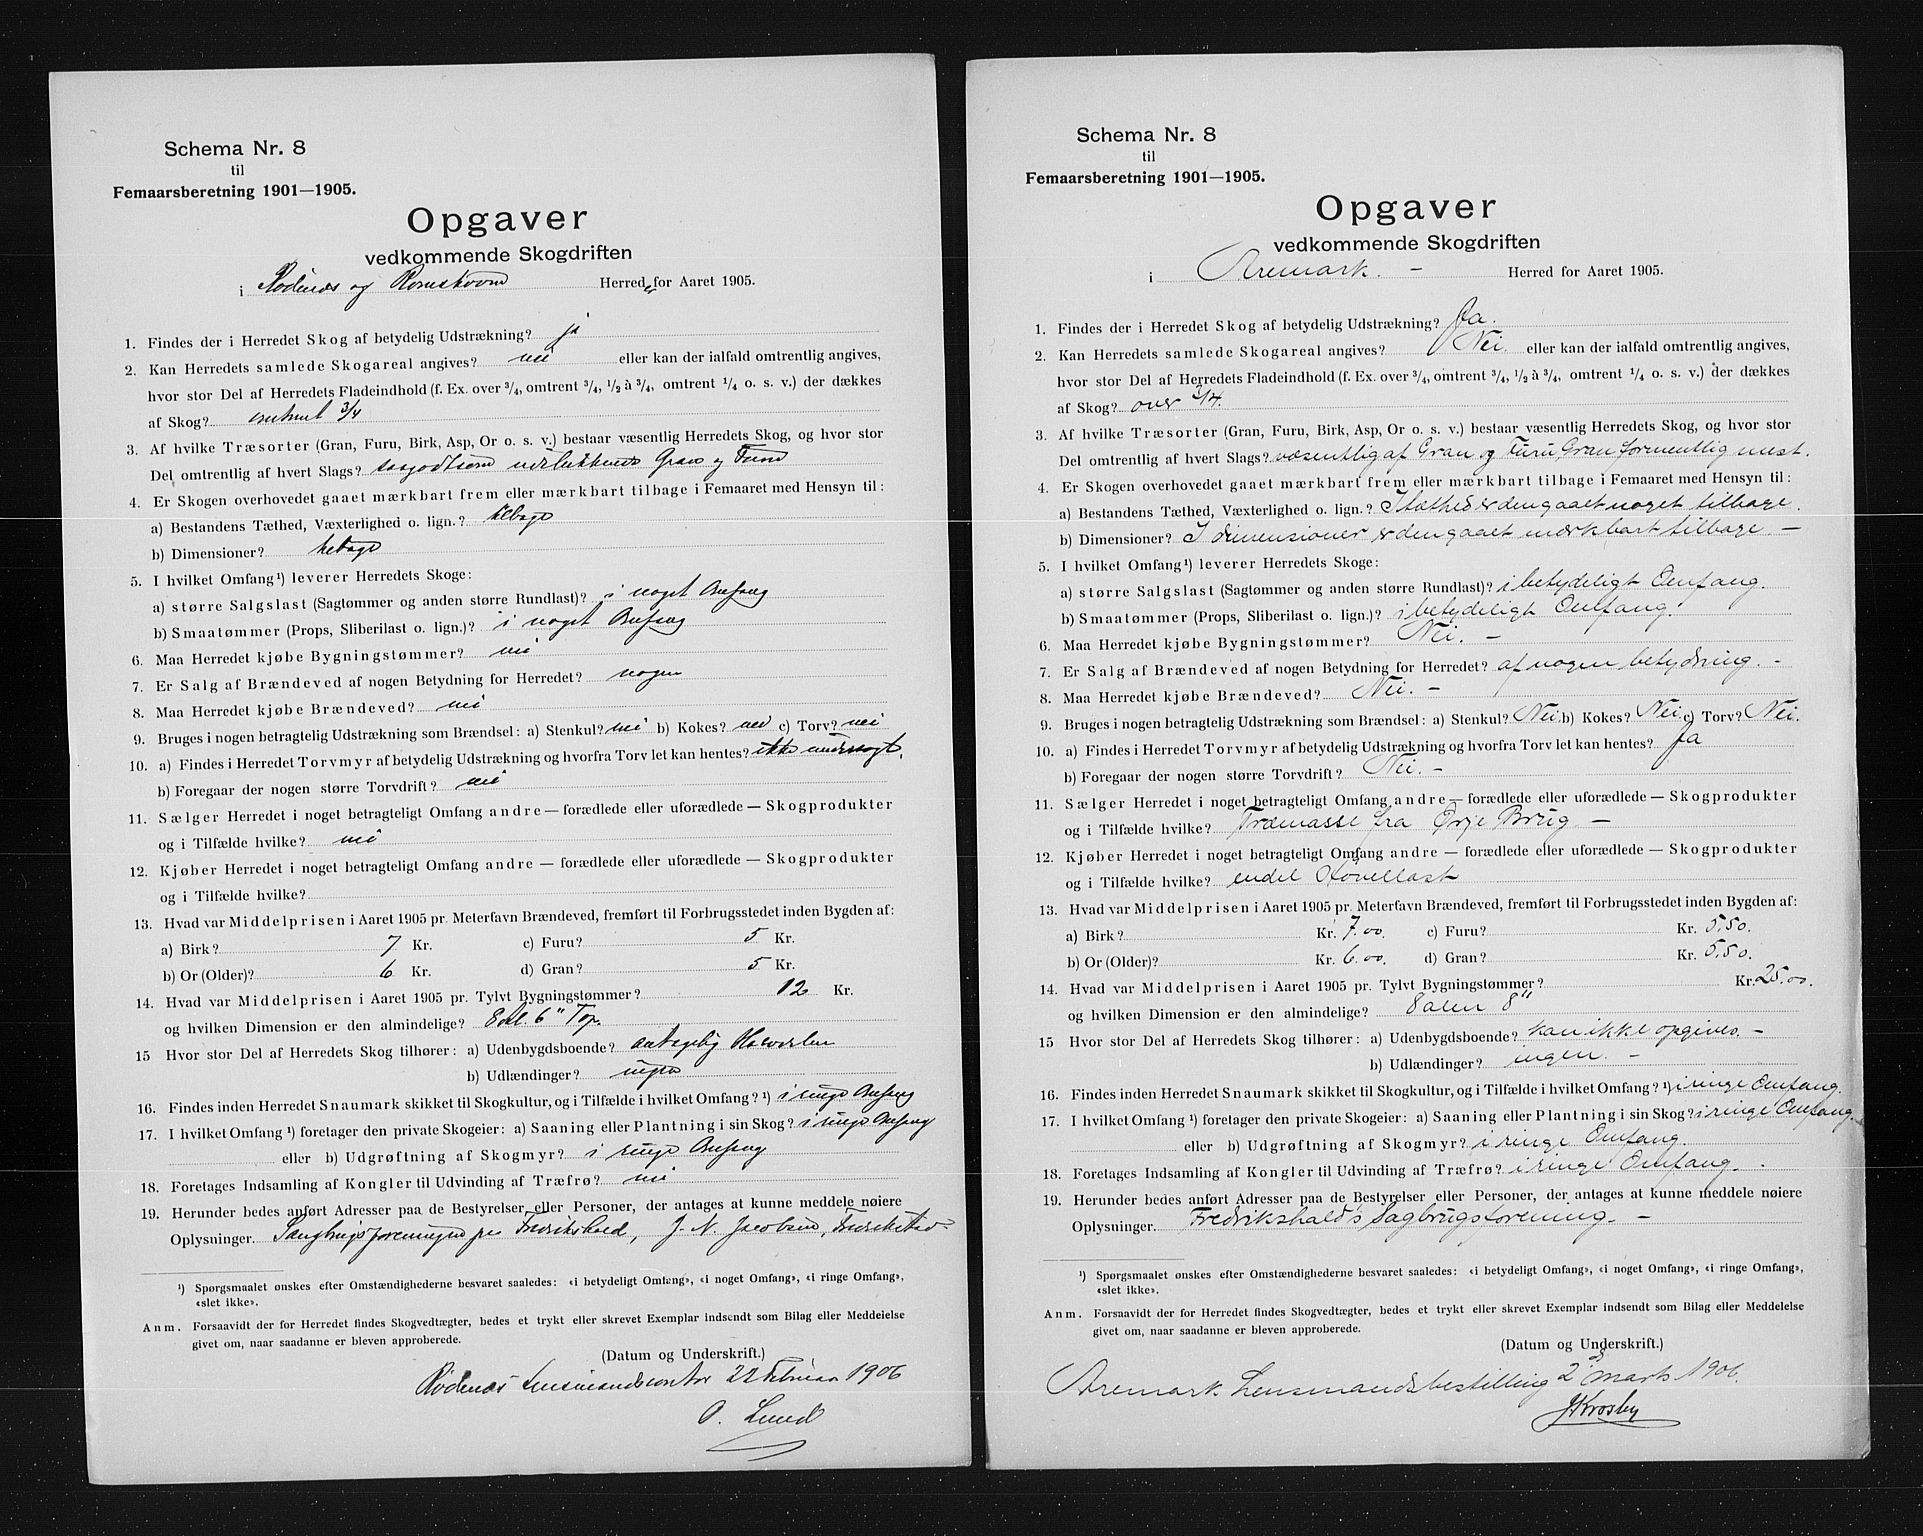 Schema Nr. 8
til
Femaarsberetning 1901—1905.
Opgaver
vedkommende Skogdriften
i Rødenes og Romskoven Herreder for Aaret 1905.
1. Findes der i Herredet Skog af betydelig Udstrækning? ja
2. Kan Herredets samlede Skogareal angives? nei eller kan der ialfald omtrentlig angives,
hvor stor Del af Herredets Fladeindhold (f. Ex. over 3/4, omtrent 3/4, 1/2 à 3/4, omtrent 1/4 o. s. v.) der dækkes
af Skog? omtrent 3/4
3. Af hvilke Træsorter (Gran, Furu, Birk, Asp, Or o. s. v.) bestaar væsentlig Herredets Skog, og hvor stor
Del omtrentlig af hvert Slags? saagodtsom udelukkende Gran og Furu
4. Er Skogen overhovedet gaaet mærkbart frem eller mærkbart tilbage i Femaaret med Hensyn til:
a) Bestandens Tæthed, Væxterlighed o. lign.? tilbage
b) Dimensioner? tilbage
5. I hvilket Omfang¹) leverer Herredets Skoge:
a) større Salgslast (Sagtømmer og anden større Rundlast)? i noget Omfang
b) Smaatømmer (Props, Sliberilast o. lign.)? i noget Omfang
6. Maa Herredet kjøbe Bygningstømmer? nei
7. Er Salg af Brændeved af nogen Betydning for Herredet? nogen
8. Maa Herredet kjøbe Brændeved? nei
9. Bruges i nogen betragtelig Udstrækning som Brændsel: a) Stenkul? nei b) Kokes? nei c) Torv? nei
10. a) Findes i Herredet Torvmyr af betydelig Udstrækning og hvorfra Torv let kan hentes? ikke undersøgt.
b) Foregaar der nogen større Torvdrift? nei
11. Sælger Herredet i noget betragteligt Omfang andre — forædlede eller uforædlede — Skogprodukter
og i Tilfælde hvilke? nei
12. Kjøber Herredet i noget betragteligt Omfang andre — forædlede eller uforædlede — Skogprodukter
og i Tilfælde hvilke?
13. Hvad var Middelprisen i Aaret 1905 pr. Meterfavn Brændeved, fremført til Forbrugsstedet inden Bygden af:
a) Birk? 7 Kr. c) Furu? 5 Kr.
b) Or (Older)? 6 Kr. d) Gran? 5 Kr.
14. Hvad var Middelprisen i Aaret 1905 pr. Tylvt Bygningstømmer? 12 Kr.
og hvilken Dimension er den almindelige? 8 al. 6" Top.
15 Hvor stor Del af Herredets Skog tilhører: a) Udenbygdsboende? antagelig Halvdelen
b) Udlændinger? ingen
16. Findes inden Herredet Snaumark skikket til Skogkultur, og i Tilfælde i hvilket Omfang? ¹) i ringe Omfang
17. I hvilket Omfang ¹) foretager den private Skogeier: a) Saaning eller Plantning i sin Skog? i ringe Omfang
eller b) Udgrøftning af Skogmyr? i ringe Omfang
18. Foretages Indsamling af Kongler til Udvinding af Træfrø? nei
19. Herunder bedes anført Adresser paa de Bestyrelser eller Personer, der antages at kunne meddele nøiere
Oplysninger. Saugbrugsforeningen paa Fredrikshald, J. N. Jacobsen, Fredrikstad
¹) Spørgsmaalet ønskes efter Omstændighederne besvaret saaledes: «i betydeligt Omfang», «i noget Omfang», «i ringe Omfang»,
«slet ikke».
Anm. Forsaavidt der for Herredet findes Skogvedtægter, bedes et trykt eller skrevet Exemplar indsendt som Bilag eller Meddelelse
givet om, naar saadanne er bleven approberede.
(Datum og Underskrift.)
Rødenes Lensmandskontor 22 Februar 1906
O. Lund
Schema Nr. 8
til
Femaarsberetning 1901—1905.
Opgaver
vedkommende Skogdriften
i Aremark. – Herred for Aaret 1905.
1. Findes der i Herredet Skog af betydelig Udstrækning? Ja.
2. Kan Herredets samlede Skogareal angives? Nei. eller kan der ialfald omtrentlig angives,
hvor stor Del af Herredets Fladeindhold (f. Ex. over 3/4, omtrent 3/4, 1/2 à 3/4, omtrent 1/4 o. s. v.) der dækkes
af Skog? over 3/4.
3. Af hvilke Træsorter (Gran, Furu, Birk, Asp, Or o. s. v.) bestaar væsentlig Herredets Skog, og hvor stor
Del omtrentlig af hvert Slags? væsentlig af Gran og Furu, Gran formentlig mest.
4. Er Skogen overhovedet gaaet mærkbart frem eller mærkbart tilbage i Femaaret med Hensyn til:
a) Bestandens Tæthed, Væxterlighed o. lign.? I tæthed er den gaaet noget tilbage.
b) Dimensioner? I dimensioner er den gaaet mærkbart tilbage –
5. I hvilket Omfang¹) leverer Herredets Skoge:
a) større Salgslast (Sagtømmer og anden større Rundlast)? i betydeligt Omfang.
b) Smaatømmer (Props, Sliberilast o. lign.)? i betydeligt Omfang.
6. Maa Herredet kjøbe Bygningstømmer? Nei. –
7. Er Salg af Brændeved af nogen Betydning for Herredet? af nogen betydning. –
8. Maa Herredet kjøbe Brændeved? Nei. –
9. Bruges i nogen betragtelig Udstrækning som Brændsel: a) Stenkul? Nei. b) Kokes? Nei. c) Torv? Nei.
10. a) Findes i Herredet Torvmyr af betydelig Udstrækning og hvorfra Torv let kan hentes? Ja
b) Foregaar der nogen større Torvdrift? Nei. –
11. Sælger Herredet i noget betragteligt Omfang andre — forædlede eller uforædlede — Skogprodukter
og i Tilfælde hvilke? Træmasse fra Ørje Brug –
12. Kjøber Herredet i noget betragteligt Omfang andre — forædlede eller uforædlede — Skogprodukter
og i Tilfælde hvilke? endel Høvellast
13. Hvad var Middelprisen i Aaret 1905 pr. Meterfavn Brændeved, fremført til Forbrugsstedet inden Bygden af:
a) Birk? Kr. 7.00. c) Furu? Kr. 5.50.
b) Or (Older)? Kr. 6.00. d) Gran? Kr. 5.50.
14. Hvad var Middelprisen i Aaret 1905 pr. Tylvt Bygningstømmer? Kr. 25.00
og hvilken Dimension er den almindelige? 8 alen 8"
15 Hvor stor Del af Herredets Skog tilhører: a) Udenbygdsboende? kan ikke opgives. –
b) Udlændinger? ingen. –
16. Findes inden Herredet Snaumark skikket til Skogkultur, og i Tilfælde i hvilket Omfang? ¹) i ringe Omfang.
17. I hvilket Omfang ¹) foretager den private Skogeier: a) Saaning eller Plantning i sin Skog? i ringe Omfang.
eller b) Udgrøftning af Skogmyr? i ringe Omfang.
18. Foretages Indsamling af Kongler til Udvinding af Træfrø? i ringe Omfang.
19. Herunder bedes anført Adresser paa de Bestyrelser eller Personer, der antages at kunne meddele nøiere
Oplysninger. Fredrikshald's Sagbrugsforening. –
¹) Spørgsmaalet ønskes efter Omstændighederne besvaret saaledes: «i betydeligt Omfang», «i noget Omfang», «i ringe Omfang»,
«slet ikke».
Anm. Forsaavidt der for Herredet findes Skogvedtægter, bedes et trykt eller skrevet Exemplar indsendt som Bilag eller Meddelelse
givet om, naar saadanne er bleven approberede.
(Datum og Underskrift.)
Aremark Lensmandsbestilling 2 marts 1906.
Krosby